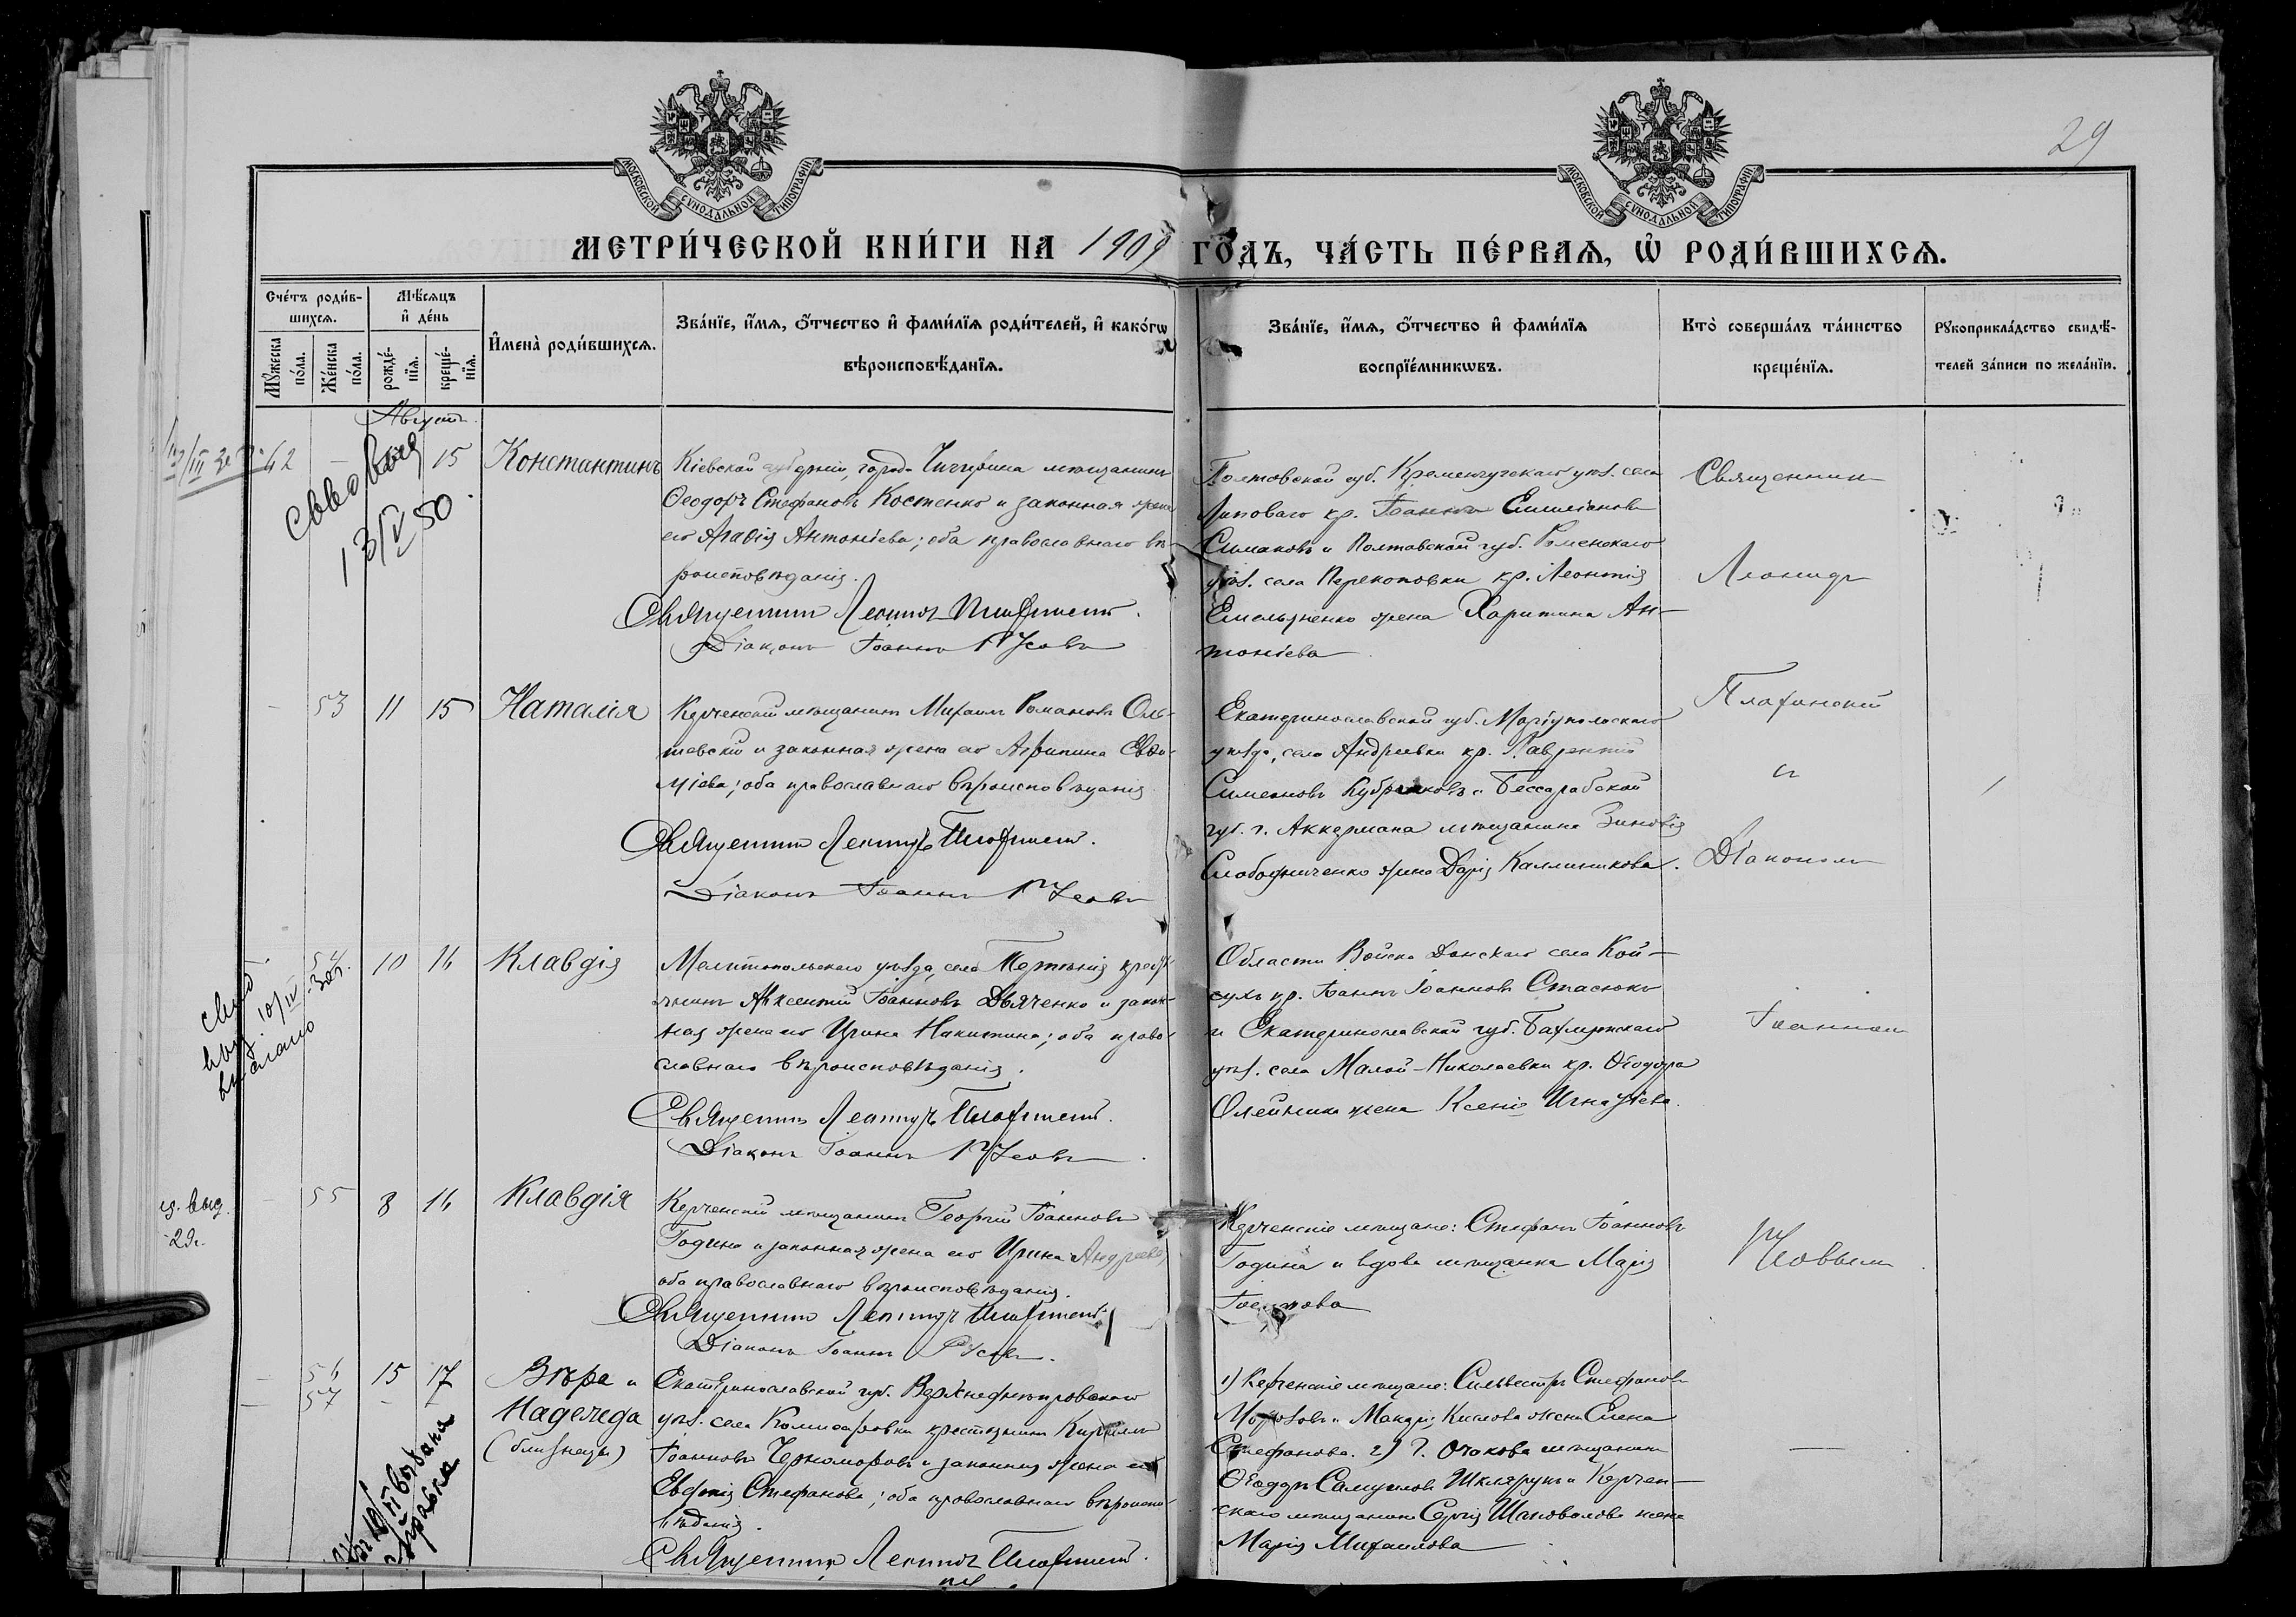 29
МОСКОВСКОЙ СУНОДАЛЬНОЙ ТИПОГРАФІИ
МОСКОВСКОЙ СУНОДАЛЬНОЙ ТИПОГРАФІИ
МЕТРИ́ЧЕСКОЙ КНИ́ГИ НА 1909 ГО́ДЪ, ЧА́СТЬ ПЕ́РВАѦ, Ѡ҆ РОДИ́ВШИХСѦ.
Сче́тъ роди́в-
шихсѧ.
Мꙋ́жеска
по́ла.
Же́нска
по́ла.
Мѣ́сѧцъ
и҆ де́нь
рожде́-
нїѧ.
креще́-
нїѧ.
И҆мена̀ роди́вшихсѧ.
Зва́нїе, и҆́мѧ, ѻ҆́тчество и҆ фами́лїѧ роди́телей, и҆ како́гѡ
вѣроисповѣ́данїѧ.
Зва́нїе, и҆́мѧ, ѻ҆́тчество и҆ фами́лїѧ
воспрїе́мникѡвъ.
Кто̀ соверша́лъ та́инство
креще́нїѧ.
Рꙋкоприкла́дство свидѣ́-
телей за́писи по жела́нїю.
Августъ
62
15
Константинъ
Кіевской губерніи, города Чигирина мѣщанинъ
Ѳеодоръ Стефановъ Костенко и законная жена
его Агафія Антоніева; оба православнаго вѣ-
роисповѣданія.
Священникъ Леонидъ
Діаконъ Іоаннъ Русовъ
Полтавской губ. Кременчугскаго уѣз. села
Липоваго кр. Іоаннъ Емиліановъ
Симаковъ и Полтавской губ. Роменскаго
уѣз. села Перекоповки кр. Леонтія
Емельяненко жена Харитина Ан-
тоніева
Священник
Леонидъ
13/V 50.
53
11
15
Наталія
Керченскій мѣщанинъ Михаилъ Романовъ Оль-
шевскій и законная жена его Агрипина Евѳи-
міева; оба православнаго вѣроисповѣданія
Священникъ Леонидъ
Діаконъ Іоаннъ Русовъ
Екатеринославской губ. Маріупольскаго
уѣзда, села Андреевки кр. Лаврентій
Симеоновъ Кубраковъ и Бессарабской
губ. г. Аккермана мѣщанина Зиновія
Слободниченко жена Дарія Каллиникова.
и
Діакономъ
54
10
16
Клавдія
Мелитопольскаго уѣзда, села Терпѣнія кресть-
янинъ Авксентій Іоанновъ Дьяченко и закон-
ная жена его Ирина Никитина; оба право-
славнаго вѣроисповѣданія.
Священникъ Леонидъ
Діаконъ Іоаннъ Русовъ
Области Войска Донскаго села Кой-
сухъ кр. Іоаннъ Іоанновъ Стасюкъ
и Екатеринославской губ. Бахмутскаго
уѣз. села Малой-Николаевки кр. Ѳеодора
Олейника жена Ксенія Игнатіева.
Іоанном
55
8
16
Клавдія
Керченскій мѣщанинъ Георгій Іоанновъ
Година и законная жена его Ирина Андреева;
оба православнаго вѣроисповѣданія.
Священникъ Леонидъ
Діаконъ Іоаннъ Русовъ.
Керченскіе мѣщане: Стефанъ Іоанновъ
Година и вдова мѣщанка Марія
Русовым
56
57
15
17
Вѣра и
Надежда
(близнецы)
Екатеринославской губ. Верхнеднѣпровскаго
уѣз. села Комисаровки крестьянинъ Кириллъ
Іоанновъ Черноморовъ и законная жена его
Евдокія Стефанова; оба православнаго вѣроиспо-
вѣданія.
Священникъ Леонидъ
1) Керченскіе мѣщане: Сильвестръ Стефановъ
Стефанова. 2) г. Очакова мѣщанинъ
Ѳеодоръ Самуиловъ Шкляру и Керчен-
скаго мѣщанина Сергія Шаповалова жена
Марія Михаилова